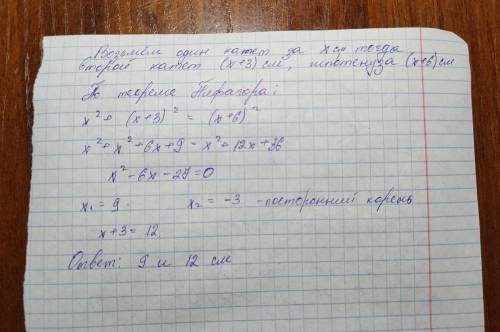 Возьмём один катет за x см тогда
второй катет (x+3) см, гипотенуза (x+6) см
По теореме Пифагора:
x² + (x+3)² = (x+6)²
x² + x² + 6x + 9 = x² + 12x + 36
x² - 6x - 27 = 0
x₁ = 9. x₂ = -3 - посторонний корень
x+3 = 12.
Ответ: 9 и 12 см